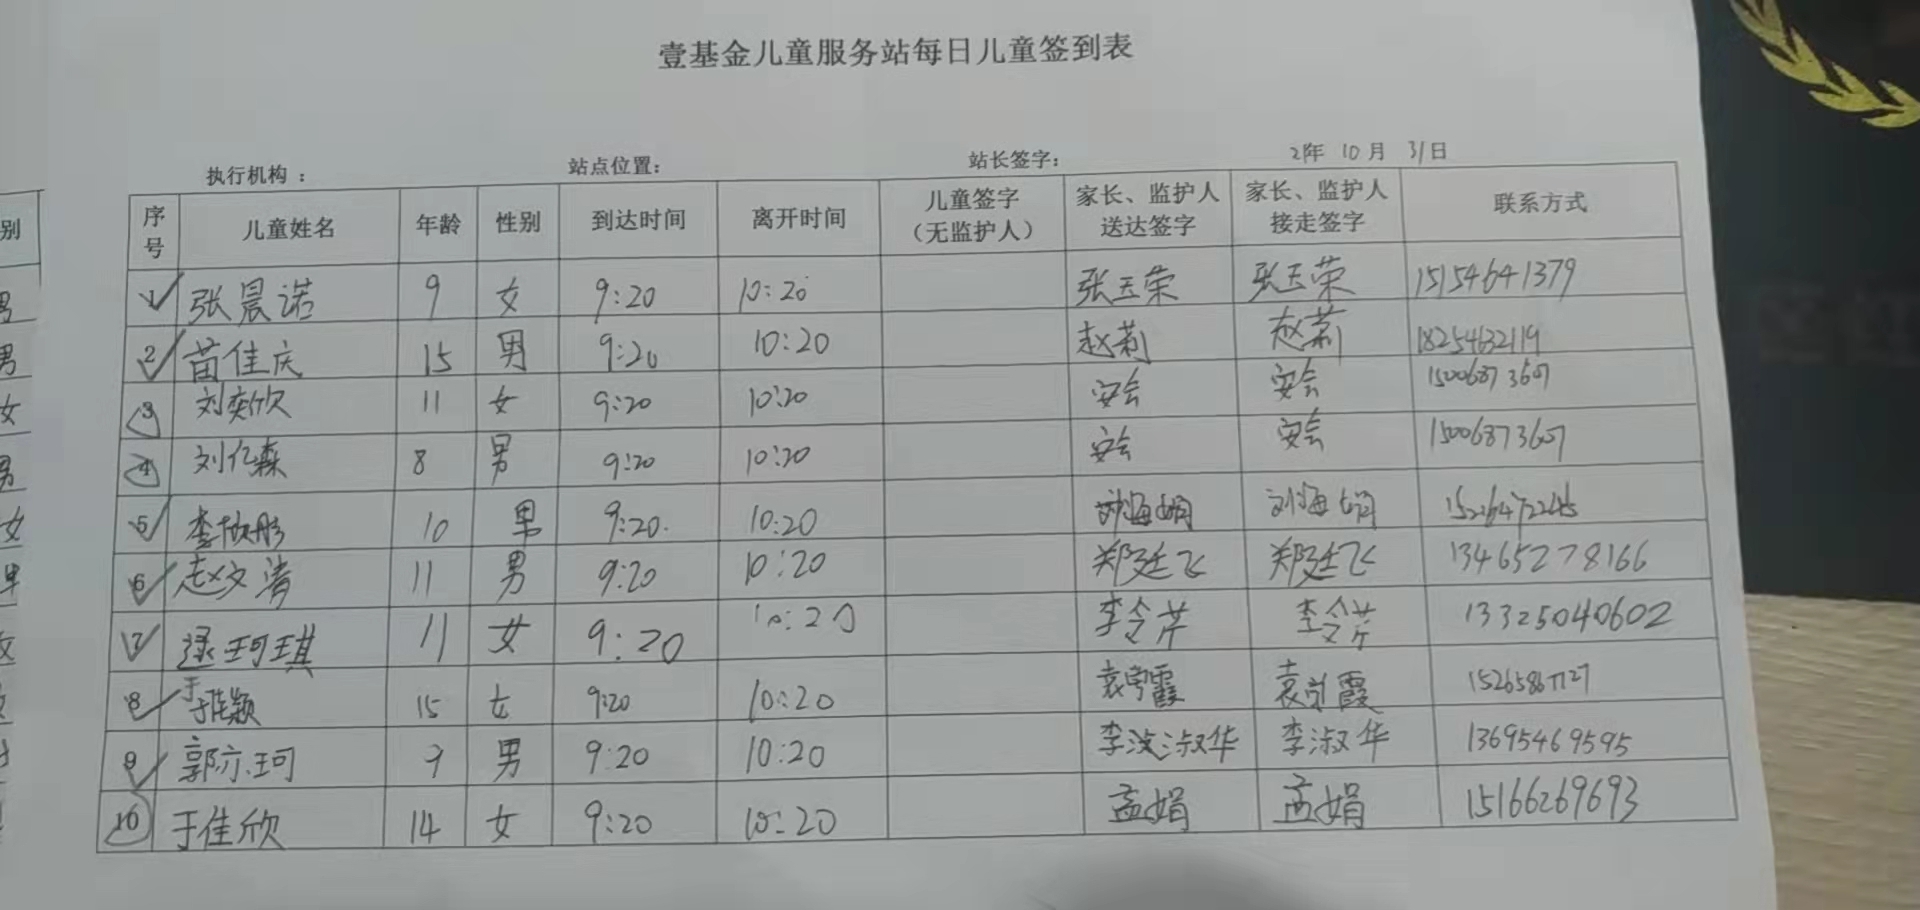 壹基金儿童服务站每日儿童签到表
执行机构： 站点位置： 站长签字： 21年 10月 31日
序号 儿童姓名 年龄 性别 到达时间 离开时间 儿童签字（无监护人） 家长、监护人送达签字 家长、监护人接走签字 联系方式
1 张晨诺 9 女 9:20 10:20 张玉荣 张玉荣 15154641379
2 苗佳庆 15 男 9:20 10:20 赵莉 赵莉 18254632119
3 刘奕欣 11 女 9:20 10:20 安会 安会 15006873607
4 刘亿森 8 男 9:20 10:20 安会 安会 15006873607
5 李欣彤 10 男 9:20 10:20 刘海娟 刘海娟
6 赵文涛 11 男 9:20 10:20 郑廷飞 郑廷飞 13465278166
7 逯珂琪 11 女 9:20 10:20 李令芹 李令芹 13325040602
8 于佳颖 15 女 9:20 10:20 袁学霞 袁学霞 15265867127
9 郭亦珂 9 男 9:20 10:20 李淑华 李淑华 13695469595
10 于佳欣 14 女 9:20 10:20 孟娟 孟娟 15166269693
别
男
男
女
男
女